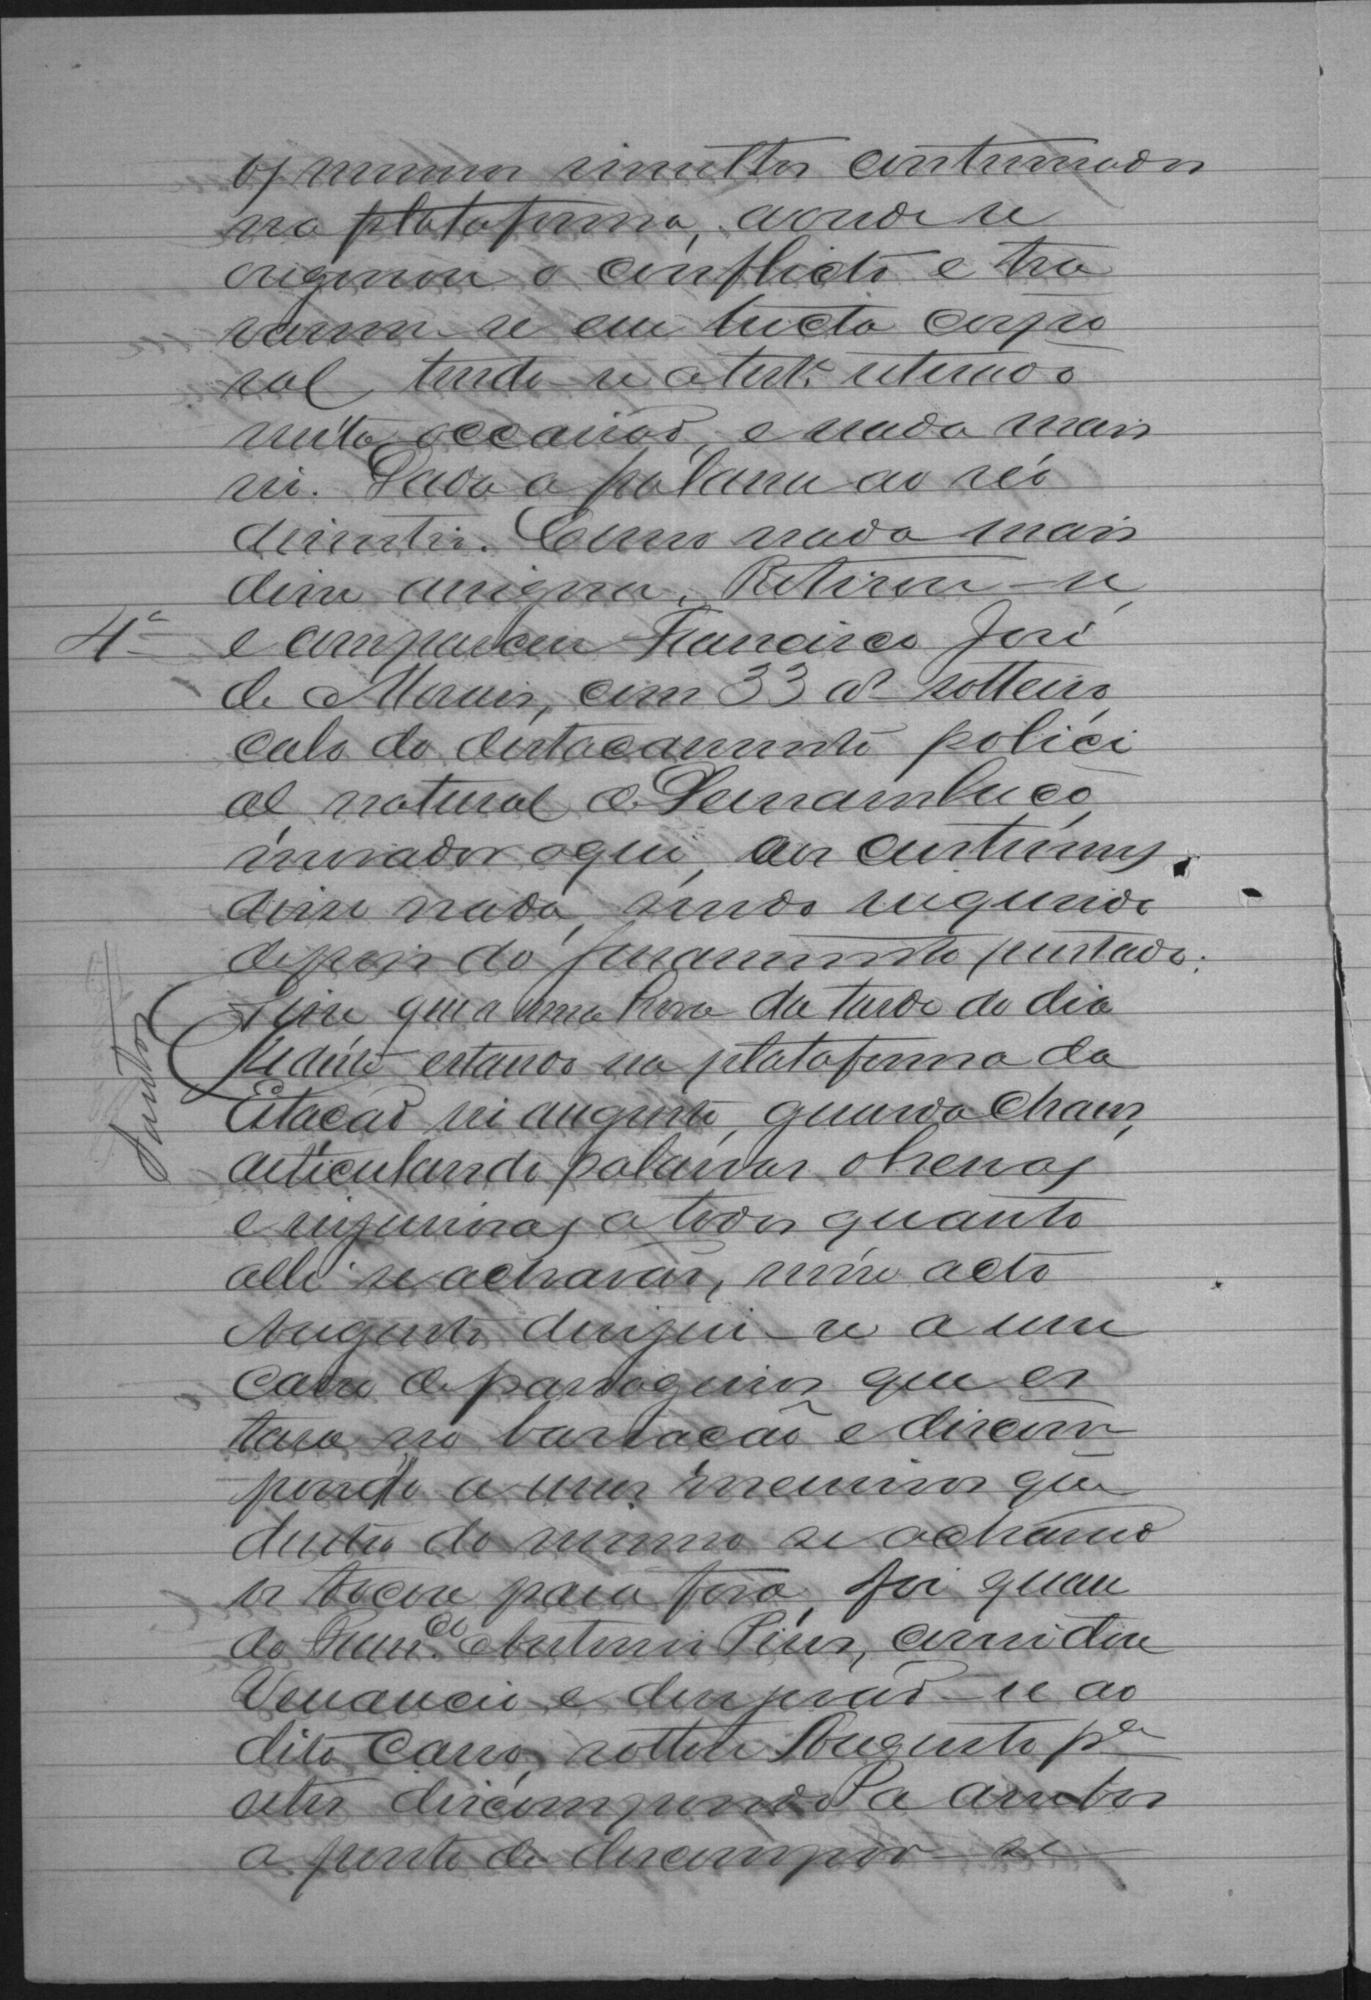 os mesmos insultos continuados
na plataforma, aonde se
originou o conflicto e tra
varam-se em lucta corpo
ral, tendo-se a test.ª retirado
nesta occasião, e nada mais
vi. Dada a palavra ao réo
desistio. Como nada mais
disse assigna. Retirou-se
4ª e compareceu Francisco José
de Moraes, com 33 as solteiro,
cabo do destacamento polici
al natural de Pernambuco,
morador aqui, aos costumes
disse nada, sendo inquirido
depois do juramento prestado.
Santos
Disse que a uma hora da tarde do dia
estando na plataforma da
Estacão vi augusto, guarda chaves,
articulando palavras obcenas
e injuriosas a todos quanto
alli se achavão, nisse acto
Augusto dirigui-se a um
carro de passageiros que es
tava na baldeacão e discom
pondo a uns meninos que
dentro do mesmo se achavão
os tocou para fora, foi quan
do Franco. Antonio Pires, convidou
Venancio e dirigirão-se ao
dito carro, voltou Augusto pa
elles discompondo a ambos
a ponto de descompor-se